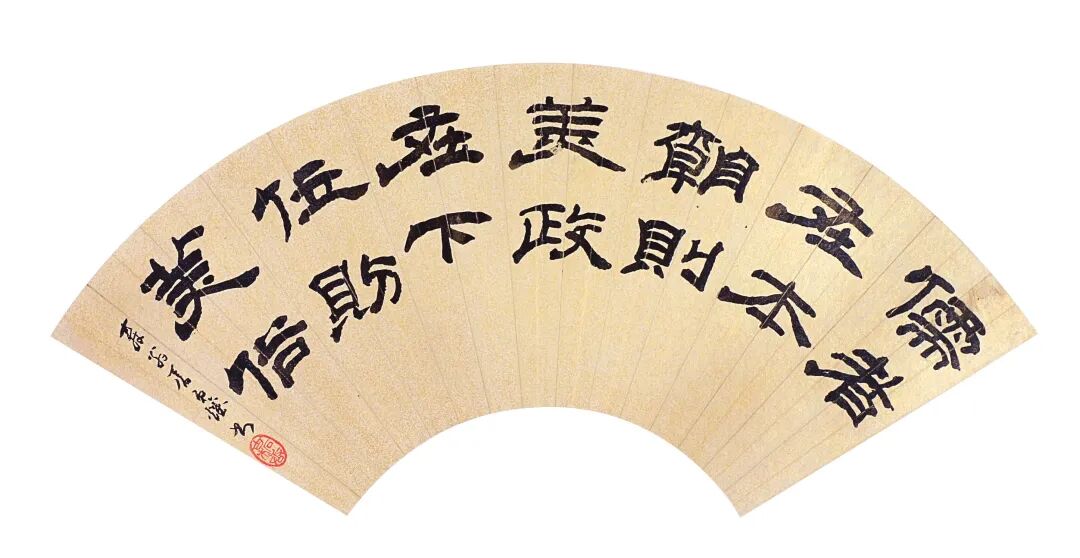 儒者
在本
朝則
美政
在下
位則
美俗